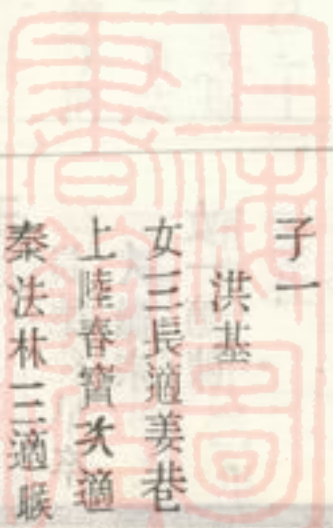 子一
洪基
女三長適姜巷
上陸春寶次適
秦法林三適䐉